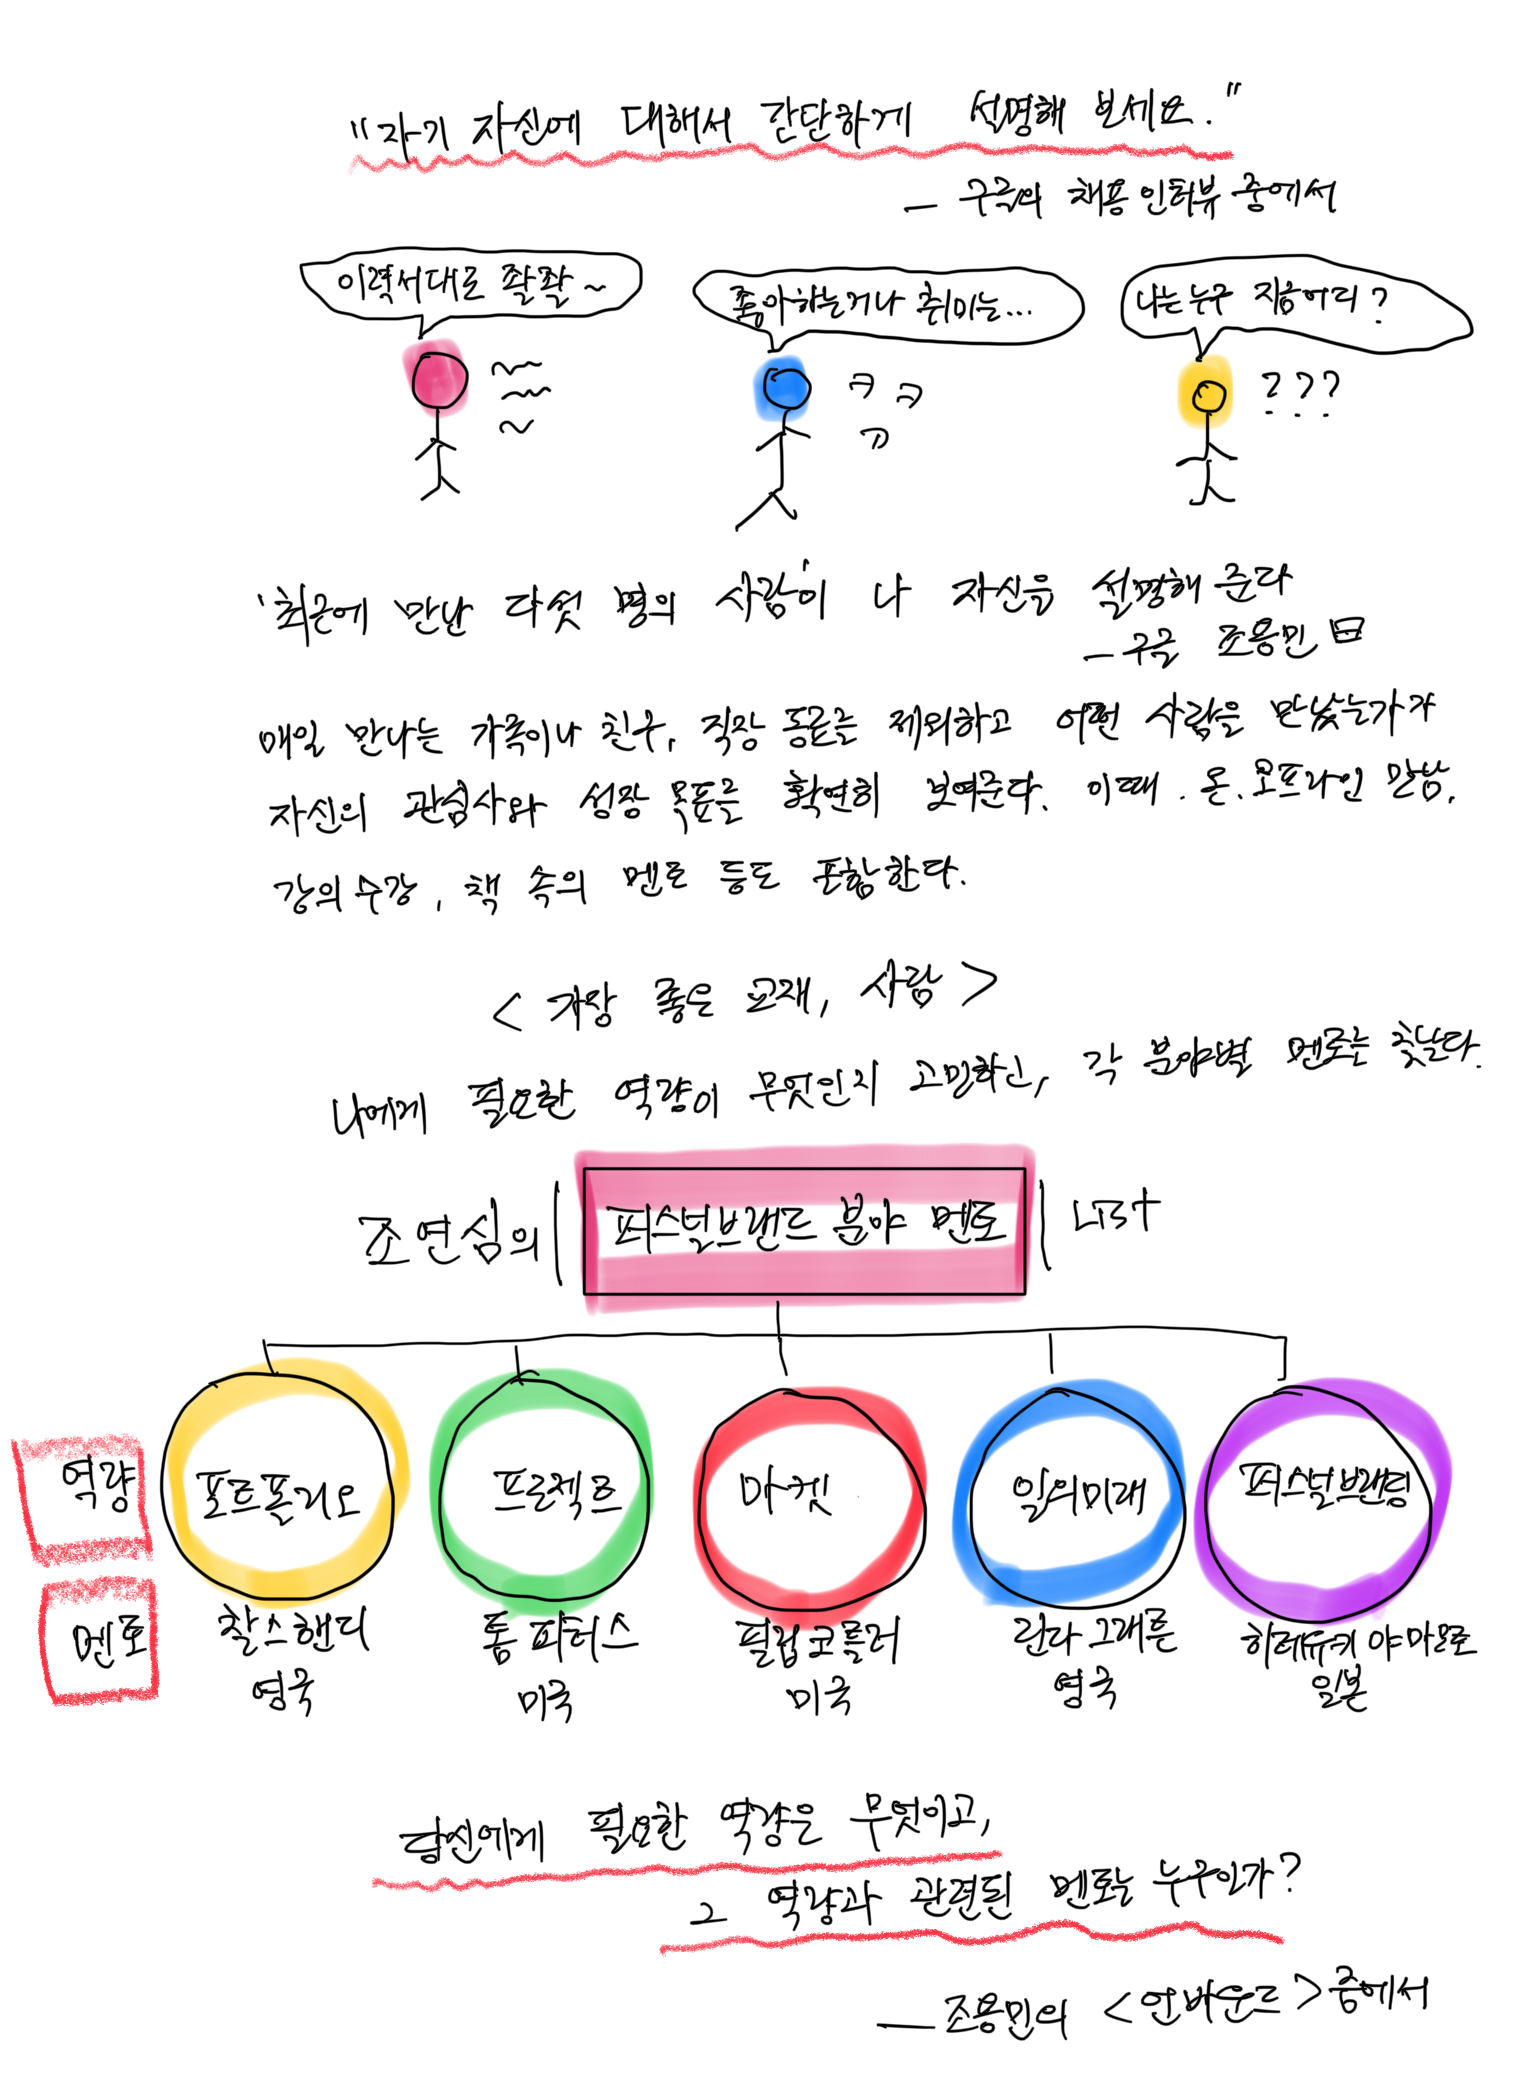 "자기 자신에 대해서 간단하게 설명해 보세요."
— 구글의 채용 인터뷰 중에서
이력서대로 좔좔~
좋아하는거나 취미는...
나는 누구 지금어디?
ㅋ ㅋ
ㅋ
???
'최근에 만난 다섯 명의 사람'이 나 자신을 설명해 준다
— 구글 조용민
매일 만나는 가족이나 친구, 직장 동료를 제외하고 어떤 사람을 만났는가가
자신의 관심사와 성장 목표를 확연히 보여준다. 이때. 온.오프라인 만남,
강의 수강, 책 속의 멘토 등도 포함한다.
< 가장 좋은 교재, 사람 >
나에게 필요한 역량이 무엇인지 고민하고, 각 분야별 멘토는 찾는다.
조연심의 | 퍼스널브랜드 분야 멘토 | LIST
역량
포트폴리오
프로젝트
마켓
일의미래
퍼스널브랜딩
멘토
찰스핸디
톰 피터스
필립코틀러
린다 그래튼
하레듀키 야마모토
영국
미국
미국
영국
일본
당신에게 필요한 역량은 무엇이고,
그 역량과 관련된 멘토는 누구인가?
— 조용민의 <언바운드> 중에서